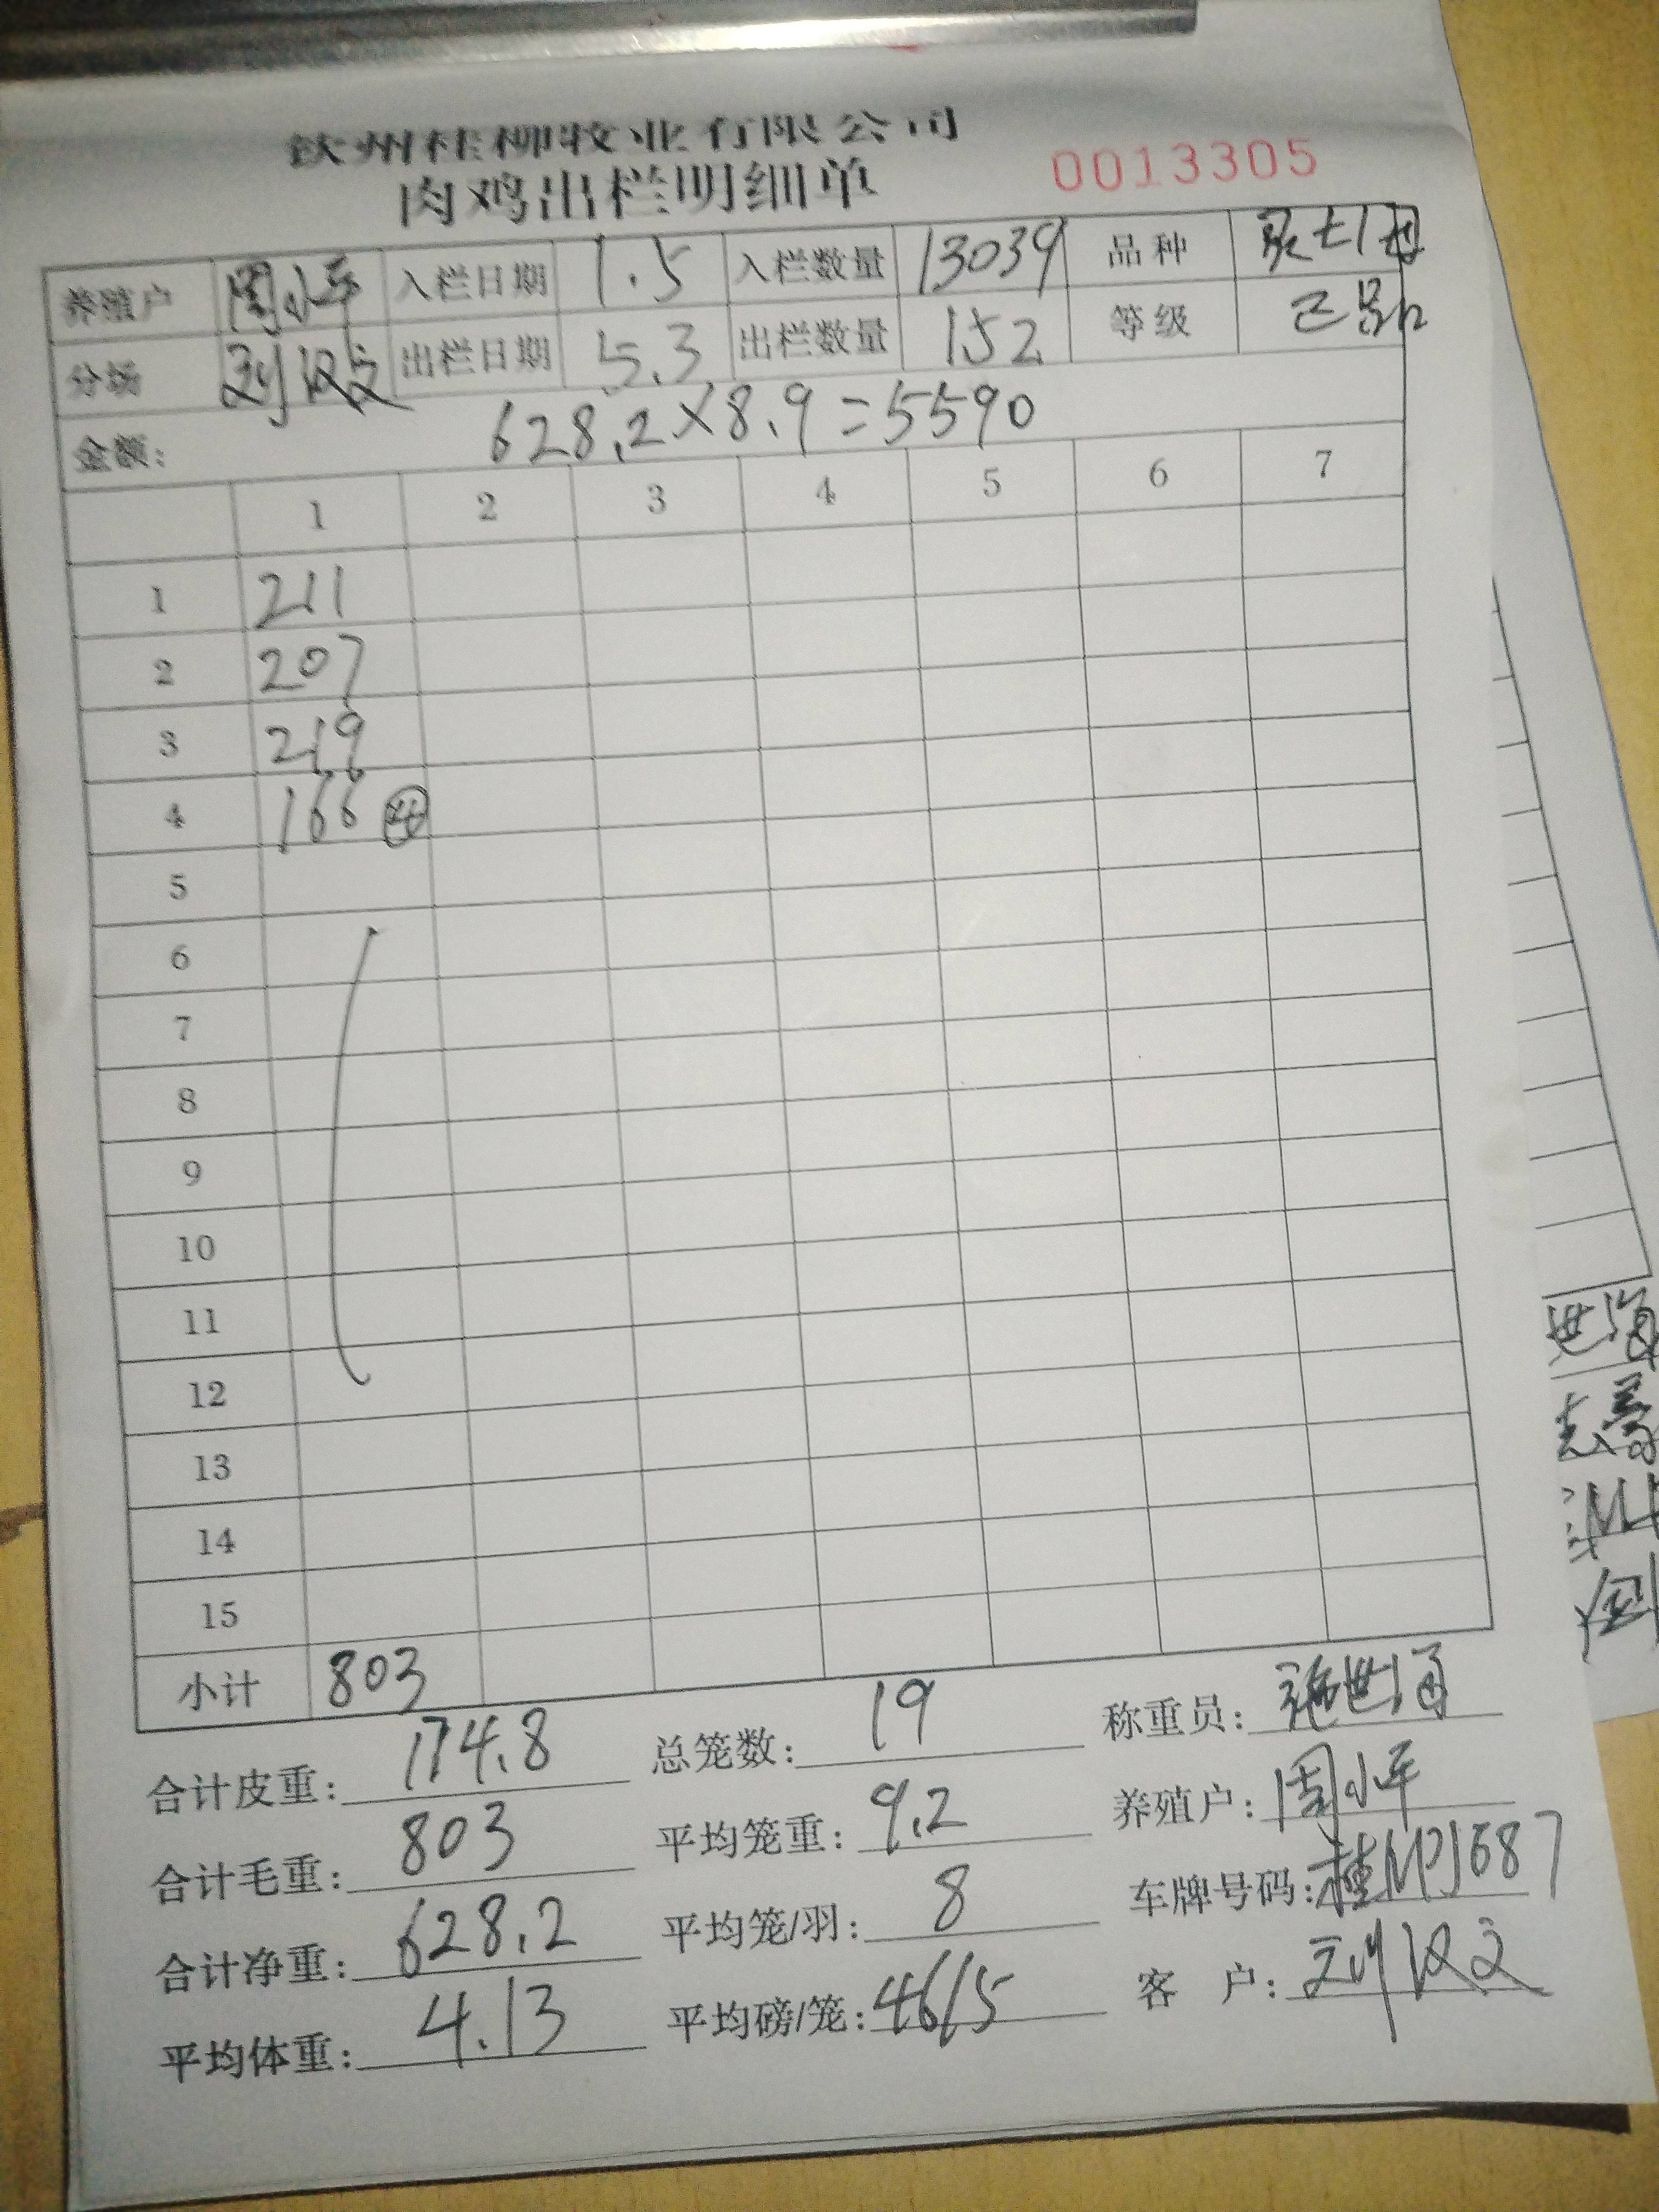 钦州桂柳牧业有限公司
肉鸡出栏明细单 0013305
养殖户 周小平 入栏日期 1.5 入栏数量 13039 品种
分场 刘汉文 出栏日期 5.3 出栏数量 152 等级 正品
金额: 628.2×8.9=5590
1 2 3 4 5 6 7
1 211
2 207
3 219
4 166 ④
5
6
7
8
9
10
11
12
13
14
15
小计 803
合计皮重: 174.8 总笼数: 19 称重员:
合计毛重: 803 平均笼重: 9.2 养殖户: 周小平
合计净重: 628.2 平均笼/羽: 8 车牌号码:
平均体重: 4.13 平均磅/笼: 46/5 客 户: 刘汉文